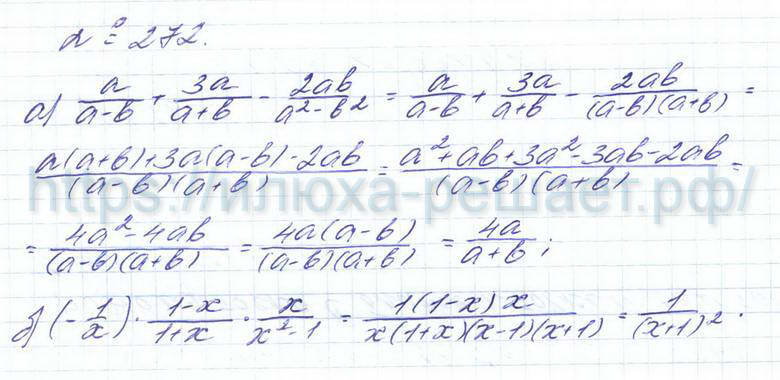 № 272.
а) a/(a-b) + 3a/(a+b) - 2ab/(a²-b²) = a/(a-b) + 3a/(a+b) - 2ab/((a-b)(a+b)) =
(a(a+b)+3a(a-b)-2ab)/((a-b)(a+b)) = (a²+ab+3a²-3ab-2ab)/((a-b)(a+b)) =
https://илюха-решает.рф/
= (4a²-4ab)/((a-b)(a+b)) = (4a(a-b))/((a-b)(a+b)) = 4a/(a+b);
б) (-1/x) · (1-x)/(1+x) · x/(x²-1) = (1(1-x)x)/(x(1+x)(x-1)(x+1)) = 1/(x+1)².